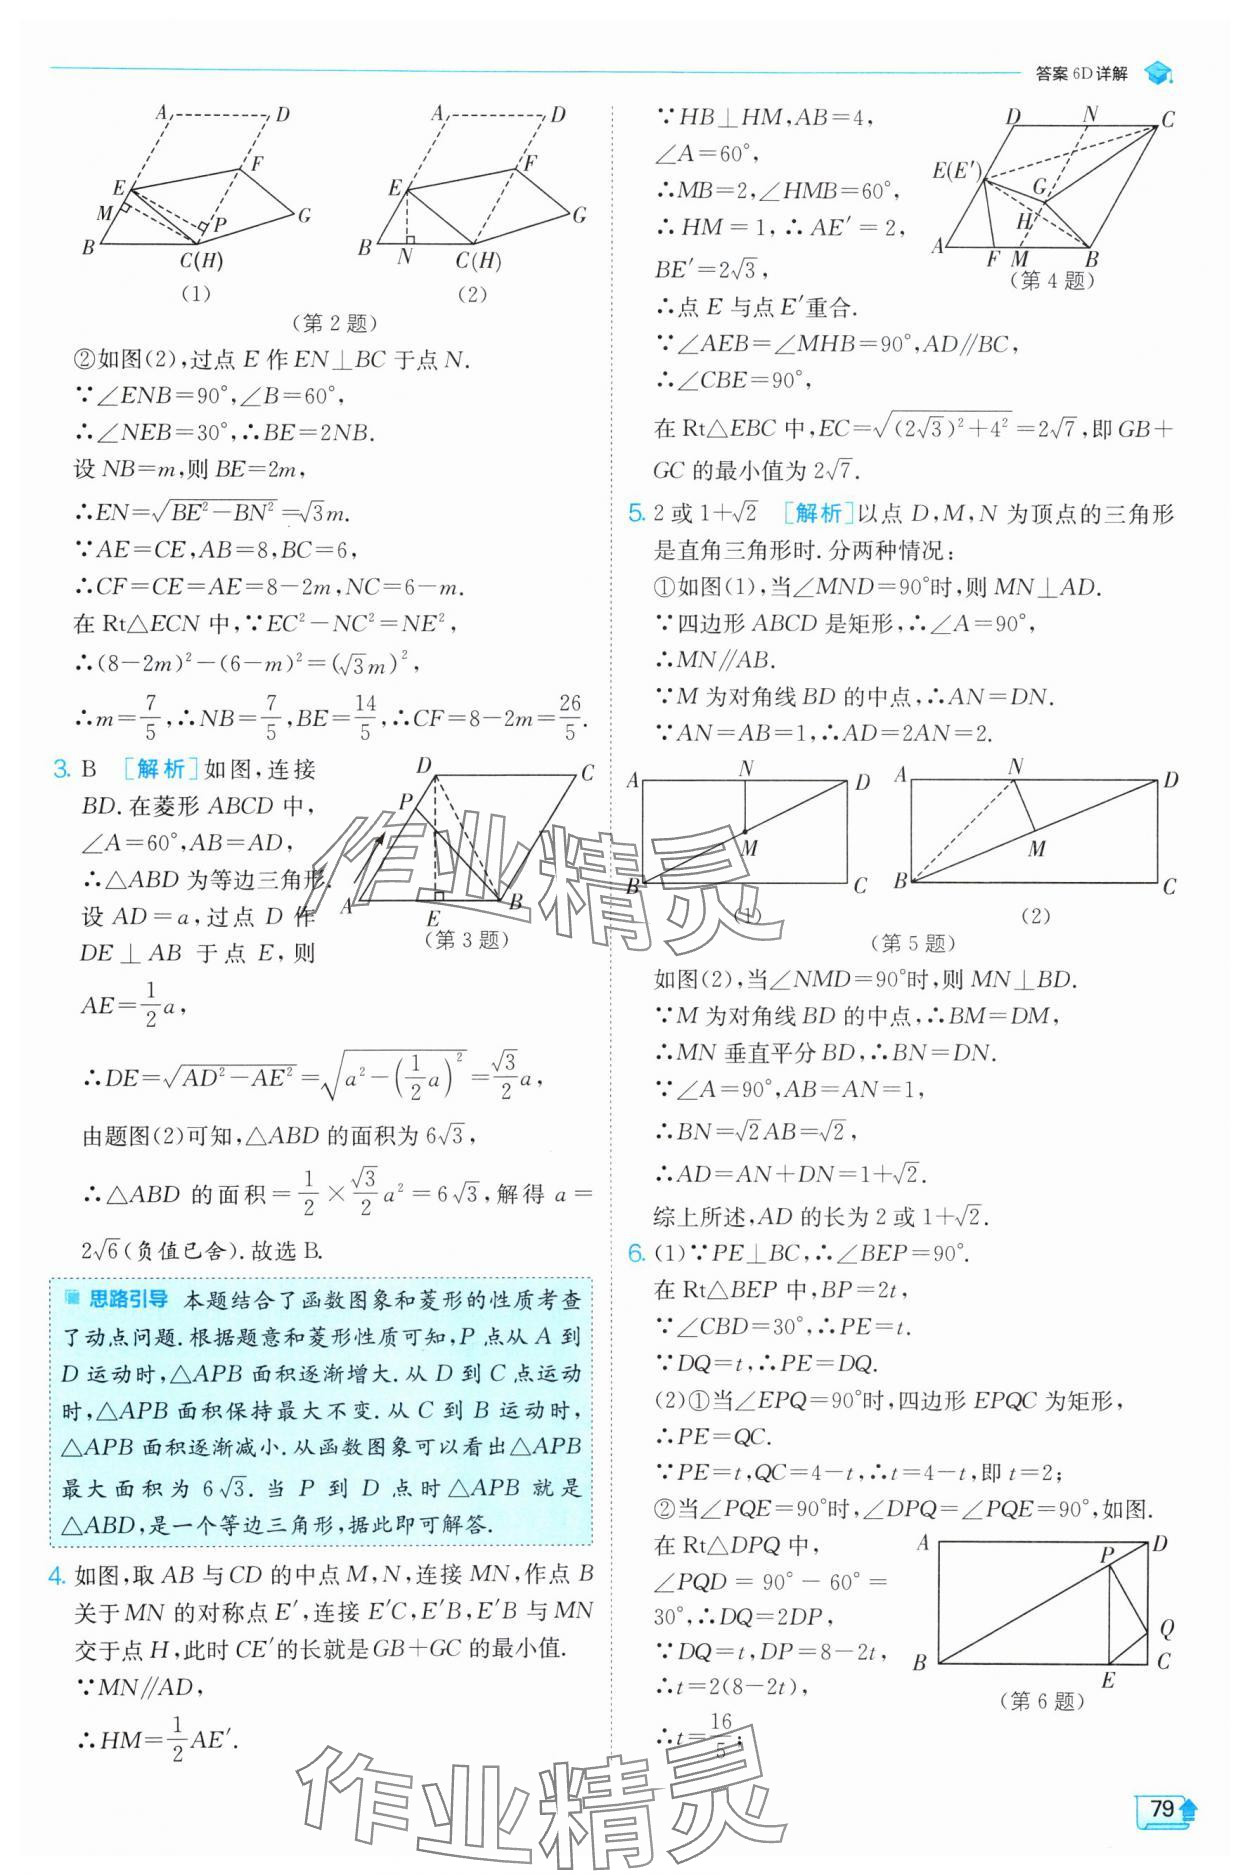 答案 6D 详解
A D E F M P G B C(H)
(1)
A D E F G B N C(H)
(2)
(第 2 题)
②如图(2),过点 E 作 EN⊥BC 于点 N.
∵∠ENB=90°,∠B=60°,
∴∠NEB=30°,∴BE=2NB.
设 NB=m,则 BE=2m,
∴EN=√(BE²-BN²)=√3m.
∵AE=CE,AB=8,BC=6,
∴CF=CE=AE=8-2m,NC=6-m.
在 Rt△ECN 中,∵EC²-NC²=NE²,
∴(8-2m)²-(6-m)²=(√3m)²,
∴m=7/5,∴NB=7/5,BE=14/5,∴CF=8-2m=26/5.
3. B [解析]如图,连接
BD.在菱形 ABCD 中,
∠A=60°,AB=AD,
∴△ABD 为等边三角形.
设 AD=a,过点 D 作
DE⊥AB 于点 E,则
AE=1/2a,
D C P A E B
(第 3 题)
∴DE=√(AD²-AE²)=√(a²-(1/2a)²)=√3/2a,
由题图(2)可知,△ABD 的面积为 6√3,
∴△ABD 的面积=1/2×√3/2a²=6√3,解得 a=
2√6(负值已舍).故选 B.
思路引导 本题结合了函数图象和菱形的性质考查
了动点问题.根据题意和菱形性质可知,P 点从 A 到
D 运动时,△APB 面积逐渐增大.从 D 到 C 点运动
时,△APB 面积保持最大不变.从 C 到 B 运动时,
△APB 面积逐渐减小.从函数图象可以看出△APB
最大面积为 6√3.当 P 到 D 点时△APB 就是
△ABD,是一个等边三角形,据此即可解答.
4. 如图,取 AB 与 CD 的中点 M,N,连接 MN,作点 B
关于 MN 的对称点 E′,连接 E′C,E′B,E′B 与 MN
交于点 H,此时 CE′的长就是 GB+GC 的最小值.
∵MN∥AD,
∴HM=1/2AE′.
∵HB⊥HM,AB=4,
∠A=60°,
∴MB=2,∠HMB=60°,
∴HM=1,∴AE′=2,
BE′=2√3,
∴点 E 与点 E′重合.
D N C E(E′) G H A F M B
(第 4 题)
∵∠AEB=∠MHB=90°,AD∥BC,
∴∠CBE=90°,
在 Rt△EBC 中,EC=√((2√3)²+4²)=2√7,即 GB+
GC 的最小值为 2√7.
5. 2 或 1+√2 [解析]以点 D,M,N 为顶点的三角形
是直角三角形时.分两种情况:
①如图(1),当∠MND=90°时,则 MN⊥AD.
∵四边形 ABCD 是矩形,∴∠A=90°,
∴MN∥AB.
∵M 为对角线 BD 的中点,∴AN=DN.
∵AN=AB=1,∴AD=2AN=2.
A N D M B C
(1)
A N D M B C
(2)
(第 5 题)
如图(2),当∠NMD=90°时,则 MN⊥BD.
∵M 为对角线 BD 的中点,∴BM=DM,
∴MN 垂直平分 BD,∴BN=DN.
∵∠A=90°,AB=AN=1,
∴BN=√2AB=√2,
∴AD=AN+DN=1+√2.
综上所述,AD 的长为 2 或 1+√2.
6. (1)∵PE⊥BC,∴∠BEP=90°.
在 Rt△BEP 中,BP=2t,
∵∠CBD=30°,∴PE=t.
∵DQ=t,∴PE=DQ.
(2)①当∠EPQ=90°时,四边形 EPQC 为矩形,
∴PE=QC.
∵PE=t,QC=4-t,∴t=4-t,即 t=2;
②当∠PQE=90°时,∠DPQ=∠PQE=90°,如图.
在 Rt△DPQ 中,
∠PQD=90°-60°=
30°,∴DQ=2DP,
∵DQ=t,DP=8-2t,
∴t=2(8-2t),
∴t=16/5;
A P D Q B E C
(第 6 题)
作业精灵
作业精灵
79